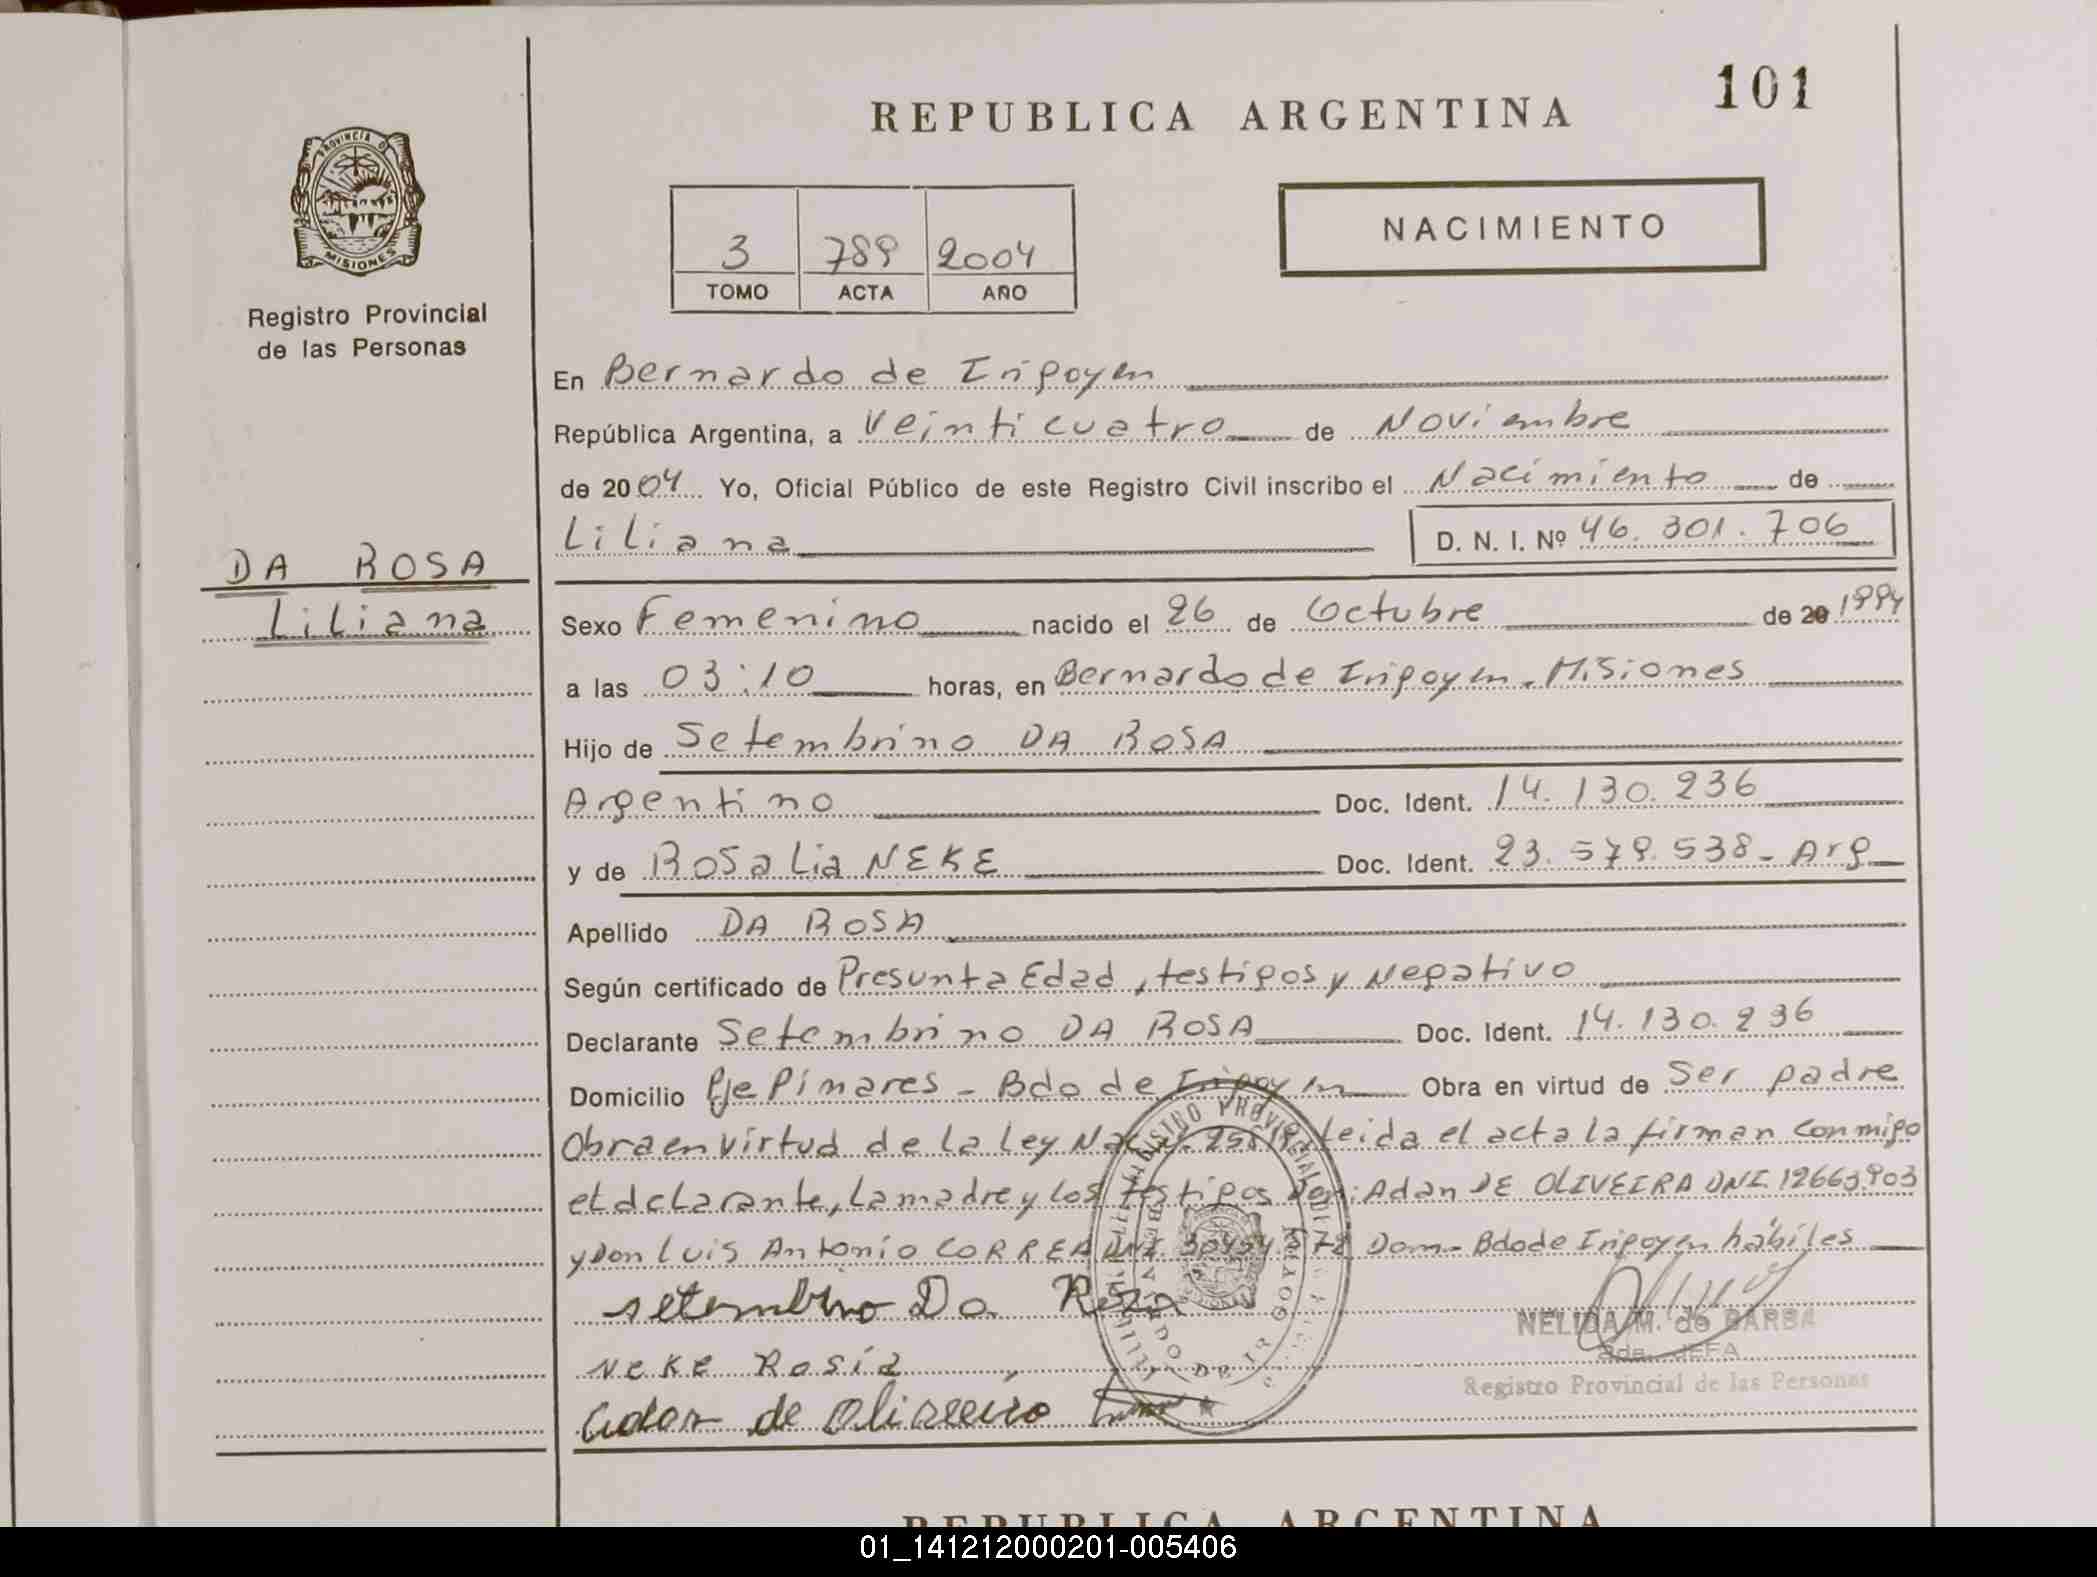 101
REPUBLICA ARGENTINA
NACIMIENTO
3 789 2004
TOMO ACTA AÑO
PROVINCIA D
MISIONES
Registro Provincial
de las Personas
En Bernardo de Irigoyen
República Argentina, a Veinticuatro de Noviembre
de 2004 Yo, Oficial Público de este Registro Civil inscribo el Nacimiento de
Liliana D. N. I. Nº 46.301.706
DA ROSA
Liliana
Sexo Femenino nacido el 26 de Octubre de 20 1994
a las 03:10 horas, en Bernardo de Irigoyen - Misiones
Hijo de Setembrino DA ROSA
Argentino Doc. Ident. 14.130.236
y de Rosalia NEKE Doc. Ident. 23.579.538 - Arg
Apellido DA ROSA
Según certificado de Presunta Edad, testigos y Negativo
Declarante Setembrino DA ROSA Doc. Ident. 14.130.236
Domicilio Pje Pinares - Bdo de Irigoyen Obra en virtud de Ser padre
Obra en virtud de la Ley Leida el acta la firman conmigo
el dclarante, la madre y los testigos Don: Adan DE OLIVEIRA DNI. 12663.903
y Don Luis Antonio CORREA DNI. Dom - Bdo de Irigoyen hábiles
setembrino Da Rosa
NEKE Rosia
Adan de Oliveira
NELIDA M. de BARBA
2da. JEFA
Registro Provincial de las Personas
REGISTRO PROVINCIAL DE
BERNARDO DE IRIGOYEN
REPUBLICA ARGENTINA
01_141212000201-005406